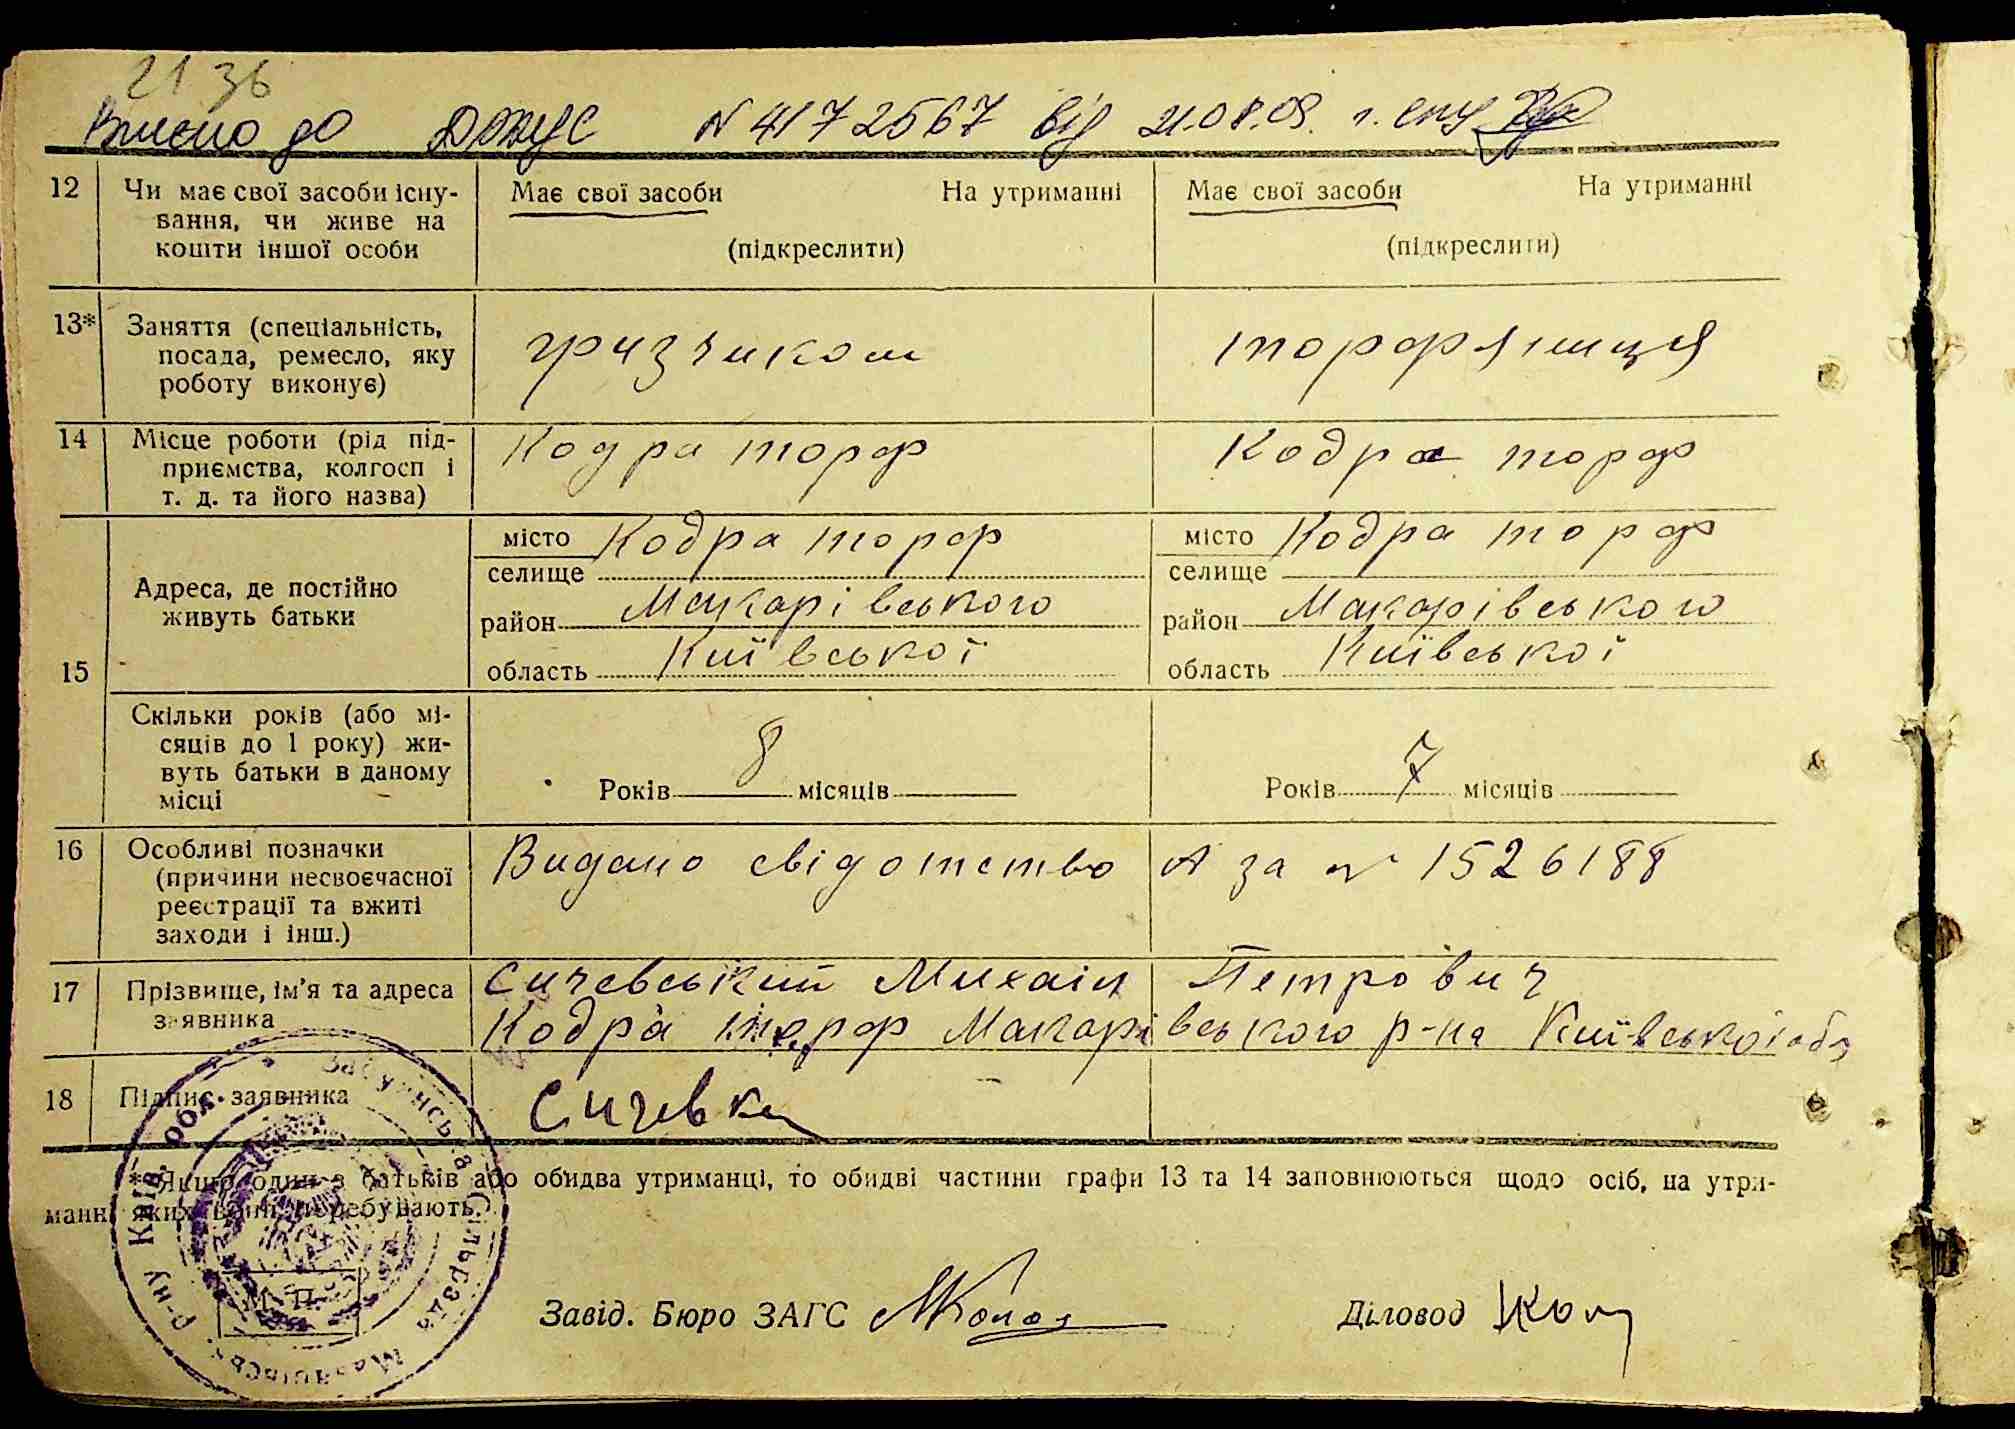 21 36
Внесено до ДРАЦС N 4172567 від 21.08.09. г.
12 Чи має свої засоби існу- Має свої засоби На утриманні Має свої засоби На утриманні
вання, чи живе на
кошти іншої особи (підкреслити) (підкреслити)
13* Заняття (спеціальність,
посада, ремесло, яку грузчиком торфяниця
роботу виконує)
14 Місце роботи (рід під- Кодра торф Кодра торф
приємства, колгосп і
т. д. та його назва)
15 Адреса, де постійно
живуть батьки
місто Кодра торф місто Кодра торф
селище селище
район Макарівського район Макарівського
область Київської область Київської
Скільки років (або мі-
сяців до 1 року) жи-
вуть батьки в даному Років 8 місяців Років 7 місяців
місці
16 Особливі позначки Видано свідотство А за № 1526188
(причини несвоєчасної
реєстрації та вжиті
заходи і інш.)
17 Прізвище, ім'я та адреса Сичевський Михаіл Петрович
заявника Кодра торф Макарівського р-на Київської обл
18 Підпис заявника Сичевк
* Якщо один з батьків або обидва утриманці, то обидві частини графи 13 та 14 заповнюються щодо осіб, на утри-
манні яких вони перебувають.
М. П.
Завід. Бюро ЗАГС Діловод
сільрада Макарівськ. р-ну Київ. обл.